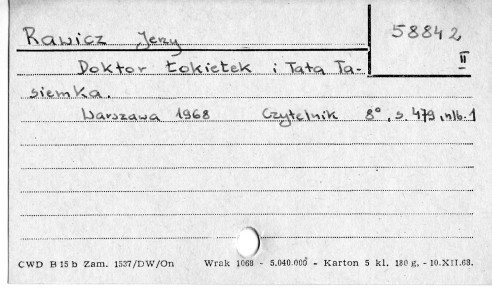 Rawicz Jerzy 58842
II
Doktor Łokietek i Tata Ta-
siemka.
Warszawa 1968 Czytelnik 8°, s. 479, nlb. 1
CWD B 15 b Zam. 1537/DW/On Wrak 1068 - 5.040.000 - Karton 5 kl. 180 g. - 10.XII.68.